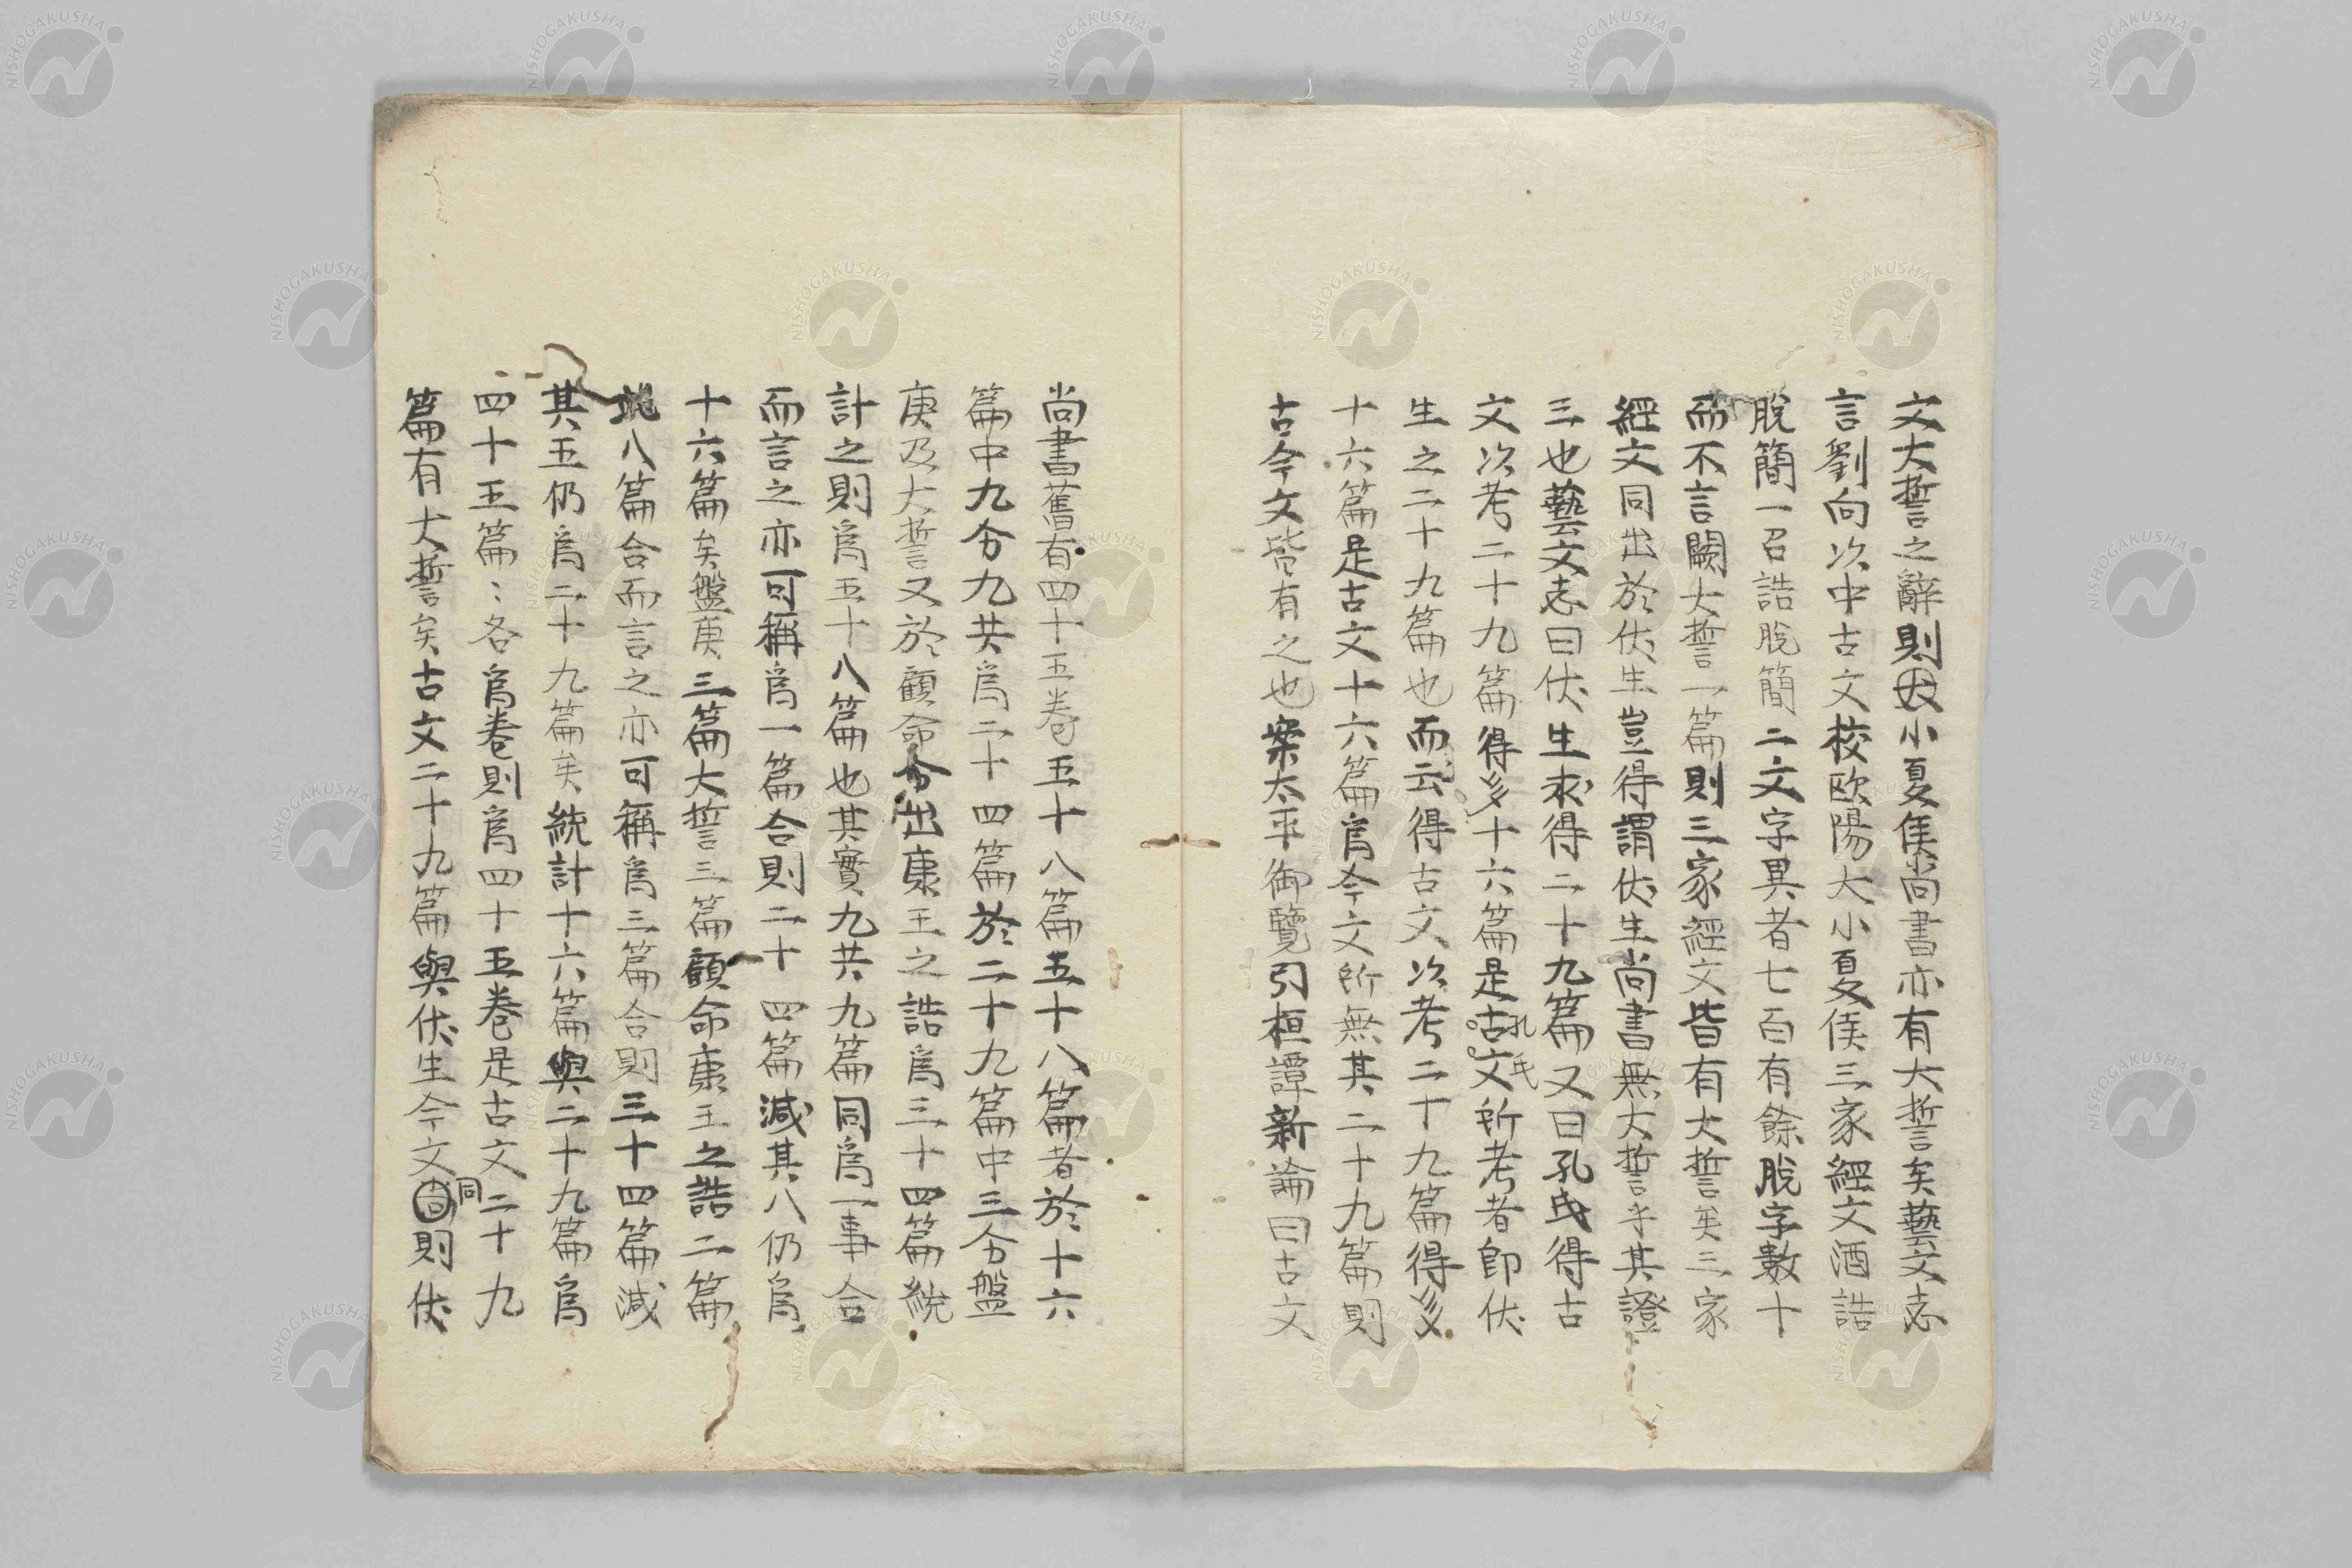 文大誓之辭則因小夏侯尚書亦有大誓矣藝文志
言劉向次中古文校欧陽大小夏侯三家經文酒誥
脫簡一召誥脫簡二文字異者七百有餘脫字數十
而不言闕大誓一篇則三家經文皆有大誓矣三家
經文同出於伏生豈得謂伏生尚書無大誓乎其證
三也藝文志曰伏生求得二十九篇又曰孔氏得古
文次考二十九篇得多十六篇是古文孔氏所考者即伏
生之二十九篇也而云得古文次考二十九篇得多
十六篇是古文十六篇爲今文所無其二十九篇則
古今文皆有之也案太平御覽引桓譚新論曰古文
尚書舊有四十五卷五十八篇五十八篇者於十六
篇中九分九共爲二十四篇於二十九篇中三分盤
庚及大誓又於顧命分出康王之誥爲三十四篇統
計之則爲五十八篇也其實九共九篇同爲一事合
而言之亦可稱爲一篇合則二十四篇減其八仍爲
十六篇矣盤庚三篇大誓三篇顧命康王之誥二篇
此八篇合而言之亦可稱爲三篇合則三十四篇減
其五仍爲二十九篇矣統計十六篇與二十九篇爲
四十五篇〻各爲卷則爲四十五卷是古文二十九
篇有大誓矣古文二十九篇與伏生今文同則伏
NISHOGAKUSHA